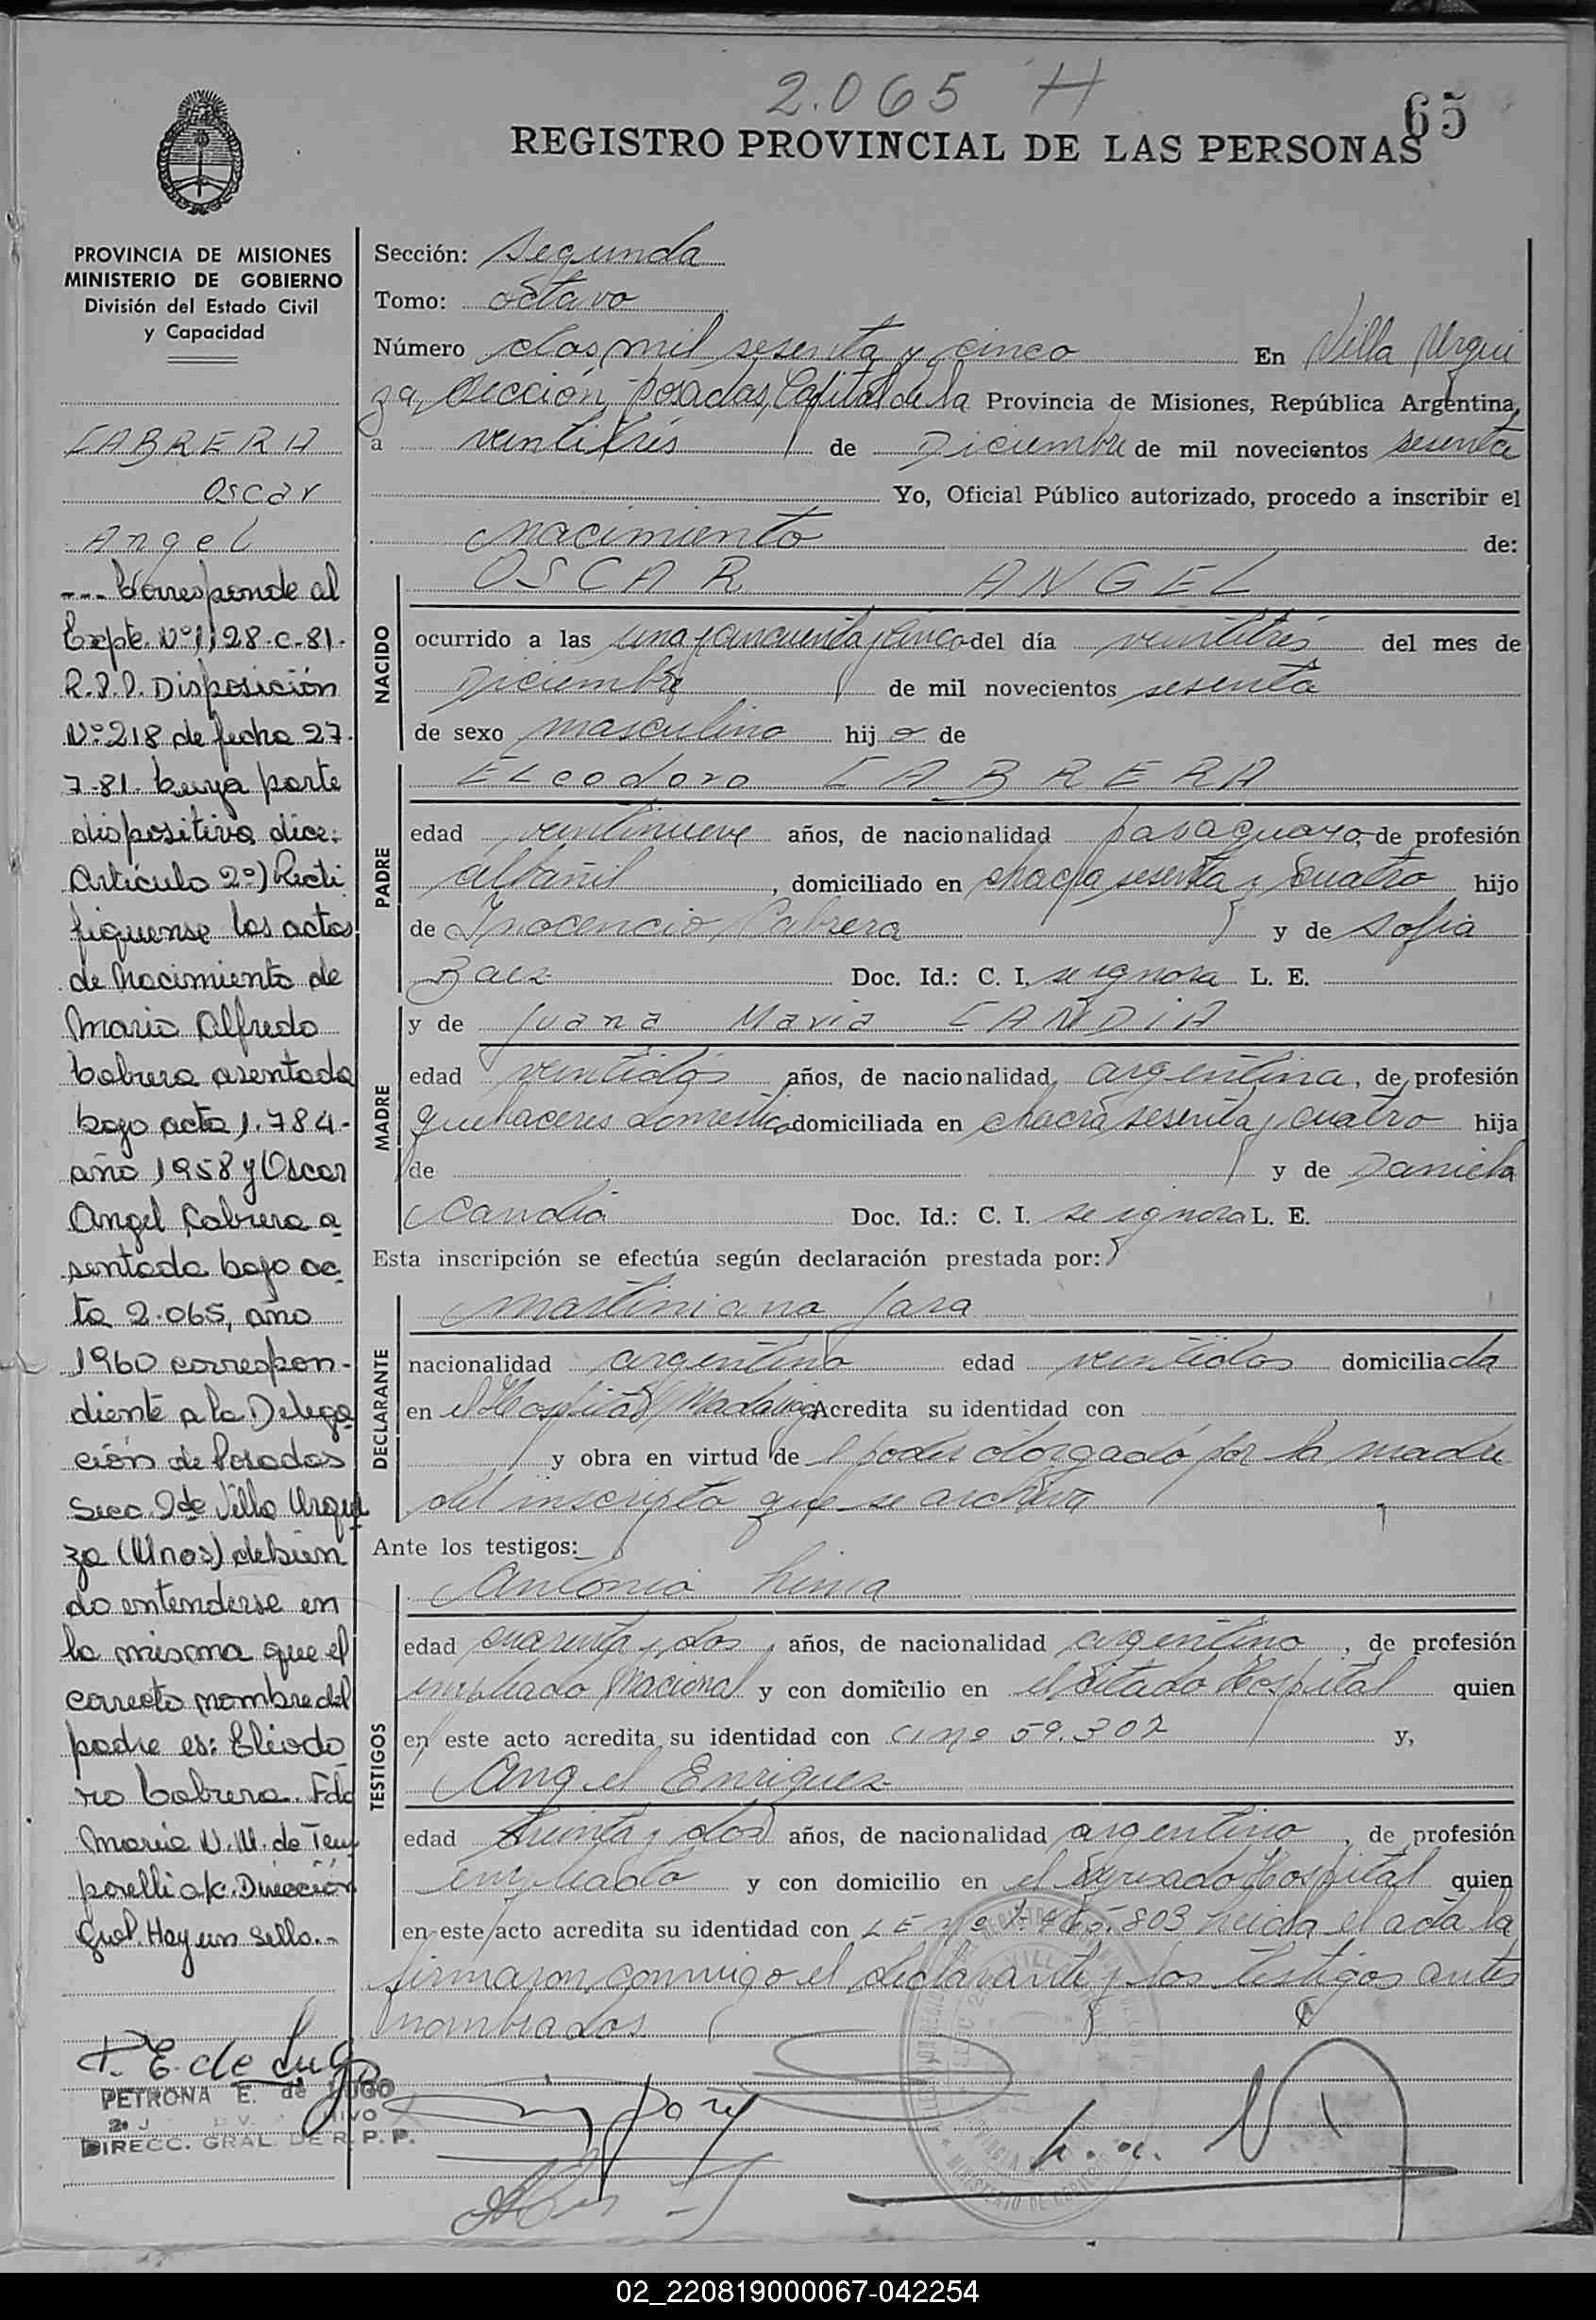 2.065 H
65
REGISTRO PROVINCIAL DE LAS PERSONAS
PROVINCIA DE MISIONES
MINISTERIO DE GOBIERNO
División del Estado Civil
y Capacidad
CABRERA
Oscar
Angel
--- Corresponde al
Expte. Nº 1128-C-81-
R.P.P. Disposición
Nº 218 de fecha 27-
7-81. Cuya parte
dispositiva dice:
Artículo 2º) Recti
fíquense las actas
de Nacimiento de
Mario Alfredo
Cabrera asentada
bajo acta 1.784-
año 1958 y Oscar
Angel Cabrera a
sentada bajo ac
ta 2.065, año
1960 correspon-
diente a la Delega
ción de Posadas
Secc. 2da Villa Urqui
za (Mnes) debien
do entenderse en
la misma que el
correcto nombre del
padre es: Eliodo
ro Cabrera. Fdo
Maria N. M. de Tem
porelli a/c. Dirección
Gral. Hay un Sello.-
P. E. de Lugo
PETRONA E. de LUGO
DIRECC. GRAL. DE R. P. P.
Sección: Segunda
Tomo: octavo
Número dos mil sesenta y cinco En Villa Urqui
za, Sección, Posadas, Capital de la Provincia de Misiones, República Argentina,
a veintitrés de Diciembre de mil novecientos sesenta
Yo, Oficial Público autorizado, procedo a inscribir el
Nacimiento de:
OSCAR ANGEL
NACIDO
ocurrido a las una y cincuenta y cinco del día veintitrés del mes de
Diciembre de mil novecientos sesenta
de sexo masculino hijo de
PADRE
ELeodoro CABRERA
edad veintinueve años, de nacionalidad paraguayo, de profesión
albañil, domiciliado en chacra sesenta y cuatro hijo
de Inocencio Cabrera y de Sofia
Baez Doc. Id.: C. I. se ignora L. E.
MADRE
y de Juana Maria CANDIA
edad veintidós años, de nacionalidad argentina, de profesión
quehaceres domestico domiciliada en chacra sesenta y cuatro hija
de y de Daniela
Candia Doc. Id.: C. I. se ignora L. E.
Esta inscripción se efectúa según declaración prestada por:
DECLARANTE
Martiniana Jara
nacionalidad argentina edad veintidos domiciliada
en el Hospital Madariaga Acredita su identidad con
y obra en virtud de l poder otorgado por la madre
del inscripto que se archiva
Ante los testigos:
TESTIGOS
Antonio
edad cuarenta y dos, años, de nacionalidad argentino, de profesión
empleado Nacional y con domicilio en el citado Hospital quien
en este acto acredita su identidad con CI nº 59.307 y,
Angel Enriquez
edad treinta y dos años, de nacionalidad argentino, de profesión
empleado y con domicilio en el expresado Hospital quien
en este acto acredita su identidad con LE nº 803 Leída el acta la
firmaron conmigo el declarante y los testigos antes
nombrados
02_220819000067-042254